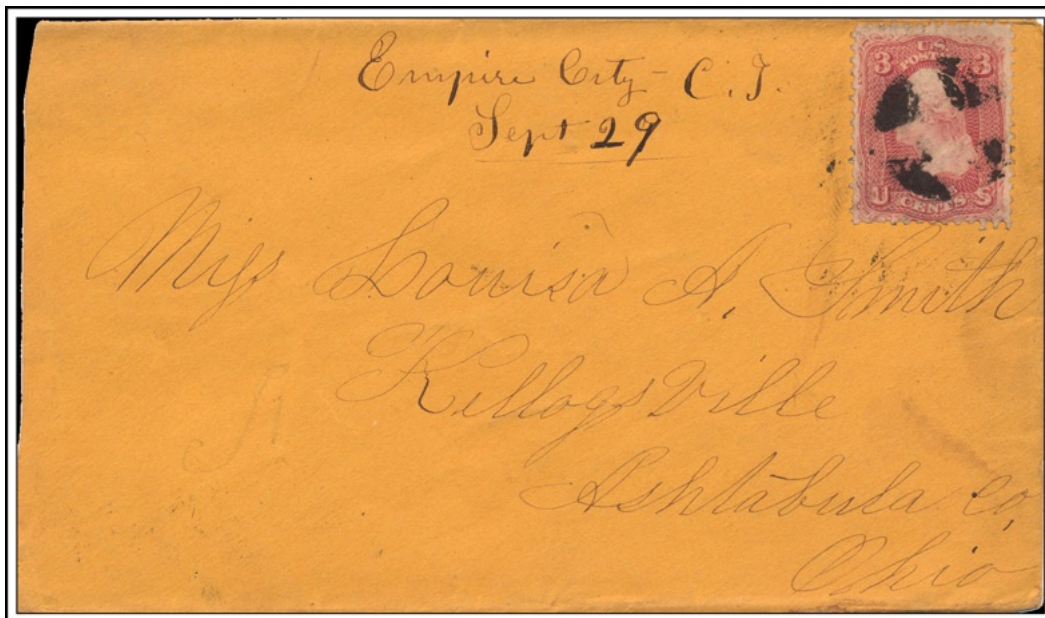 Empire City - C.T.
Sept 29
3 U.S. 3
POSTAGE
U CENTS S
Miss Louisa A. Smith
Kellogsville
Ashtabula Co,
Ohio